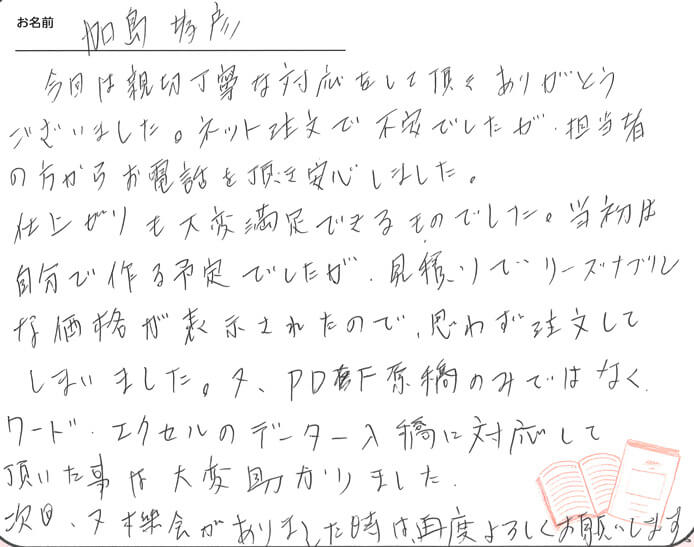 お名前 加島 秀彦
今回は親切丁寧な対応をして頂きありがとう
ございました。ネット注文で不安でしたが、担当者
の方からお電話を頂き安心しました。
仕上がりも大変満足できるものでした。当初は
自分で作る予定でしたが、見積りでリーズナブル
な価格が表示されたので、思わず注文して
しまいました。又、PDF原稿のみではなく、
ワード・エクセルのデーター入稿に対応して
頂いた事は大変助かりました。
次回、又機会がありました時は再度よろしくお願いします